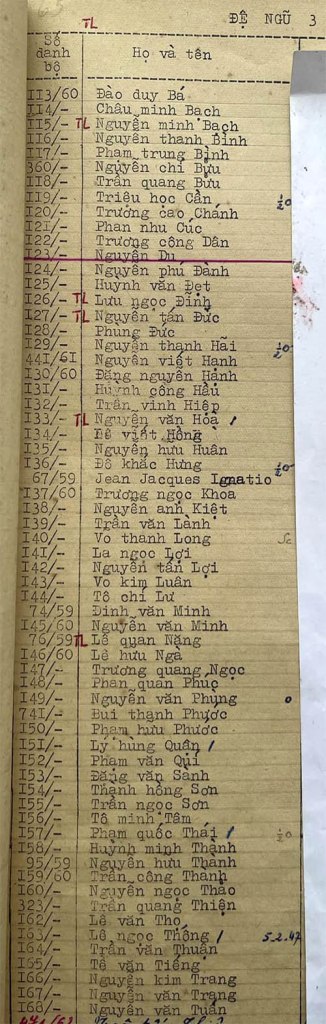 TL ĐỆ NGŨ 3
Số danh bộ Họ và tên
113/60 Đào duy Bá
114/- Châu minh Bạch
115/- TL Nguyễn minh Bạch
116/- Nguyễn thanh Bình
117/- Phạm trung Bình
360/- Nguyễn chí Bửu
118/- Trần quang Bửu
119/- Triệu học Cần ½0
120/- Trương cao Chánh
121/- Phan nhu Cúc
122/- Trương công Dân
123/- Nguyễn Du
124/- Nguyễn phú Đành
125/- Huỳnh văn Đẹt
126/- TL Lưu ngọc Đỉnh
127/- TL Nguyễn tấn Đức
128/- Phung Đức
129/- Nguyễn thanh Hai ½0
441/61 Nguyễn viết Hạnh
130/60 Đặng nguyễn Hạnh
131/- Huỳnh công Hầu
132/- Trần vinh Hiệp
133/- TL Nguyễn văn Hoà /
134/- Đỗ viết Hồng
135/- Nguyễn hưu Huân
136/- Đỗ khắc Hưng ½0
67/59 Jean Jacques Ignatio
137/60 Trương ngọc Khoa
138/- Nguyễn anh Kiệt
139/- Trần văn Lành
140/- Vo thanh Long Sc
141/- La ngọc Lợi
142/- Nguyễn tấn Lợi
143/- Vo kim Luân
144/- Tô chí Lư
74/59 Đinh văn Minh
145/60 Nguyễn văn Minh
76/59 TL Lê quan Nặng
146/60 Lê hưu Ngà
147/- Trương quang Ngọc
148/- Phan quan Phúc
149/- Nguyễn văn Phụng 0
741/- Bui thanh Phước
150/- Phạm hưu Phước
151/- Lý hùng Quân /
152/- Phạm văn Qúi
153/- Đặng văn Sành
154/- Thạnh hồng Sơn
155/- Trần ngọc Sơn
156/- Tô minh Tâm
157/- Phạm quốc Thái / ½0
158/- Huỳnh minh Thành
95/59 Nguyễn hưu Thành
159/60 Trần công Thanh
160/- Nguyễn ngọc Thảo
323/- Trần quang Thiện
162/- Lê văn Thọ
163/- Lê ngọc Thống / 5.2.47
164/- Trần văn Thuận
165/- Tề văn Tiếng
166/- Nguyễn kim Trang
167/- Nguyễn văn Trạng
168/- Nguyễn văn Tuấn